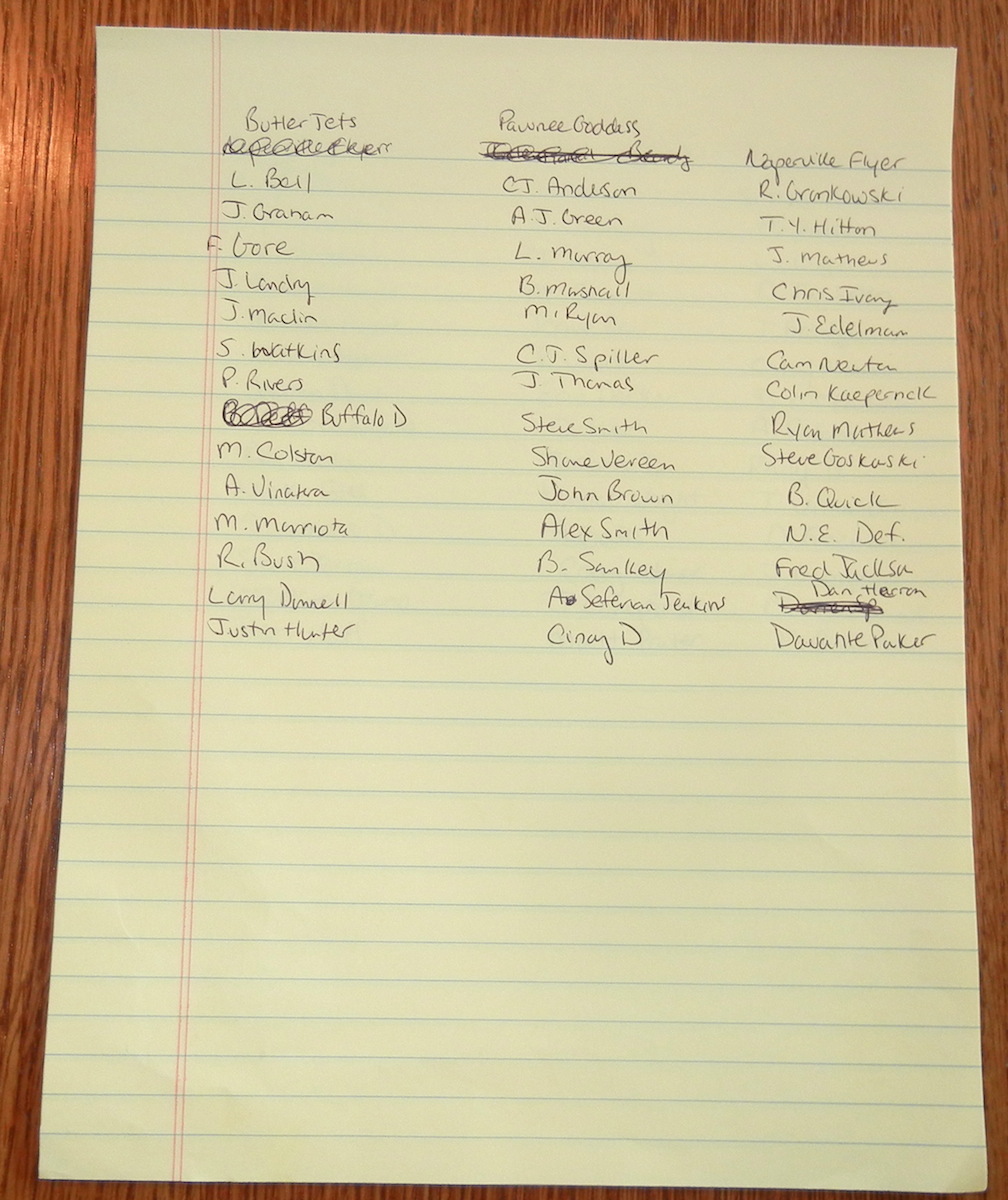 Butler Jets
L. Bell
J. Graham
F. Gore
J. Landry
J. Maclin
S. Watkins
P. Rivers
Buffalo D
M. Colston
A. Vinatera
M. Marriota
R. Bush
Larry Donnell
Justin Hunter
Pawnee Goddess
CJ. Anderson
A.J. Green
L. Murray
B. Marshall
M. Ryan
C.J. Spiller
J. Thomas
Steve Smith
Shane Vereen
John Brown
Alex Smith
B. Sankey
A. Seferian Jenkins
Cincy D
Naperville Flyer
R. Gronkowski
T.Y. Hilton
J. Mathews
Chris Ivory
J. Edelman
Cam Newton
Colin Kaepernick
Ryan Mathews
Steve Goskowski
B. Quick
N.E. Def.
Fred Jackson
Dan Herron
Davante Parker